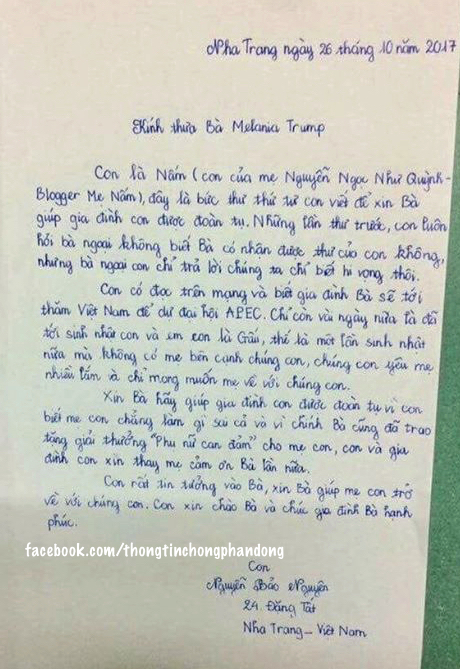 Nha Trang ngày 26 tháng 10 năm 2017
Kính thưa Bà Melania Trump
Con là Nấm (con của mẹ Nguyễn Ngọc Như Quỳnh-
Blogger Mẹ Nấm), đây là bức thư thứ tư con viết để xin Bà
giúp gia đình con được đoàn tụ. Những lần thư trước, con luôn
hỏi bà ngoại không biết Bà có nhận được thư của con không,
nhưng bà ngoại con chỉ trả lời chúng ta chỉ biết hi vọng thôi.
Con có đọc trên mạng và biết gia đình Bà sẽ tới
thăm Việt Nam để dự đại hội APEC. Chỉ còn vài ngày nữa là đã
tới sinh nhật con và em con là Gấu, thế là một lần sinh nhật
nữa mà không có mẹ bên cạnh chúng con, chúng con yêu mẹ
nhiều lắm và chỉ mong muốn mẹ về với chúng con.
Xin Bà hãy giúp gia đình con được đoàn tụ vì con
biết mẹ con chẳng làm gì sai cả và vì chính Bà cũng đã trao
tặng giải thưởng "Phụ nữ can đảm" cho mẹ con, con và gia
đình con xin thay mẹ cảm ơn Bà lần nữa.
Con rất tin tưởng vào Bà, xin Bà giúp mẹ con trở
về với chúng con. Con xin chào Bà và chúc gia đình Bà hạnh
phúc.
facebook.com/thongtinchongphandong
Con
Nguyễn Bảo Nguyên
24 Đặng Tất
Nha Trang - Việt Nam